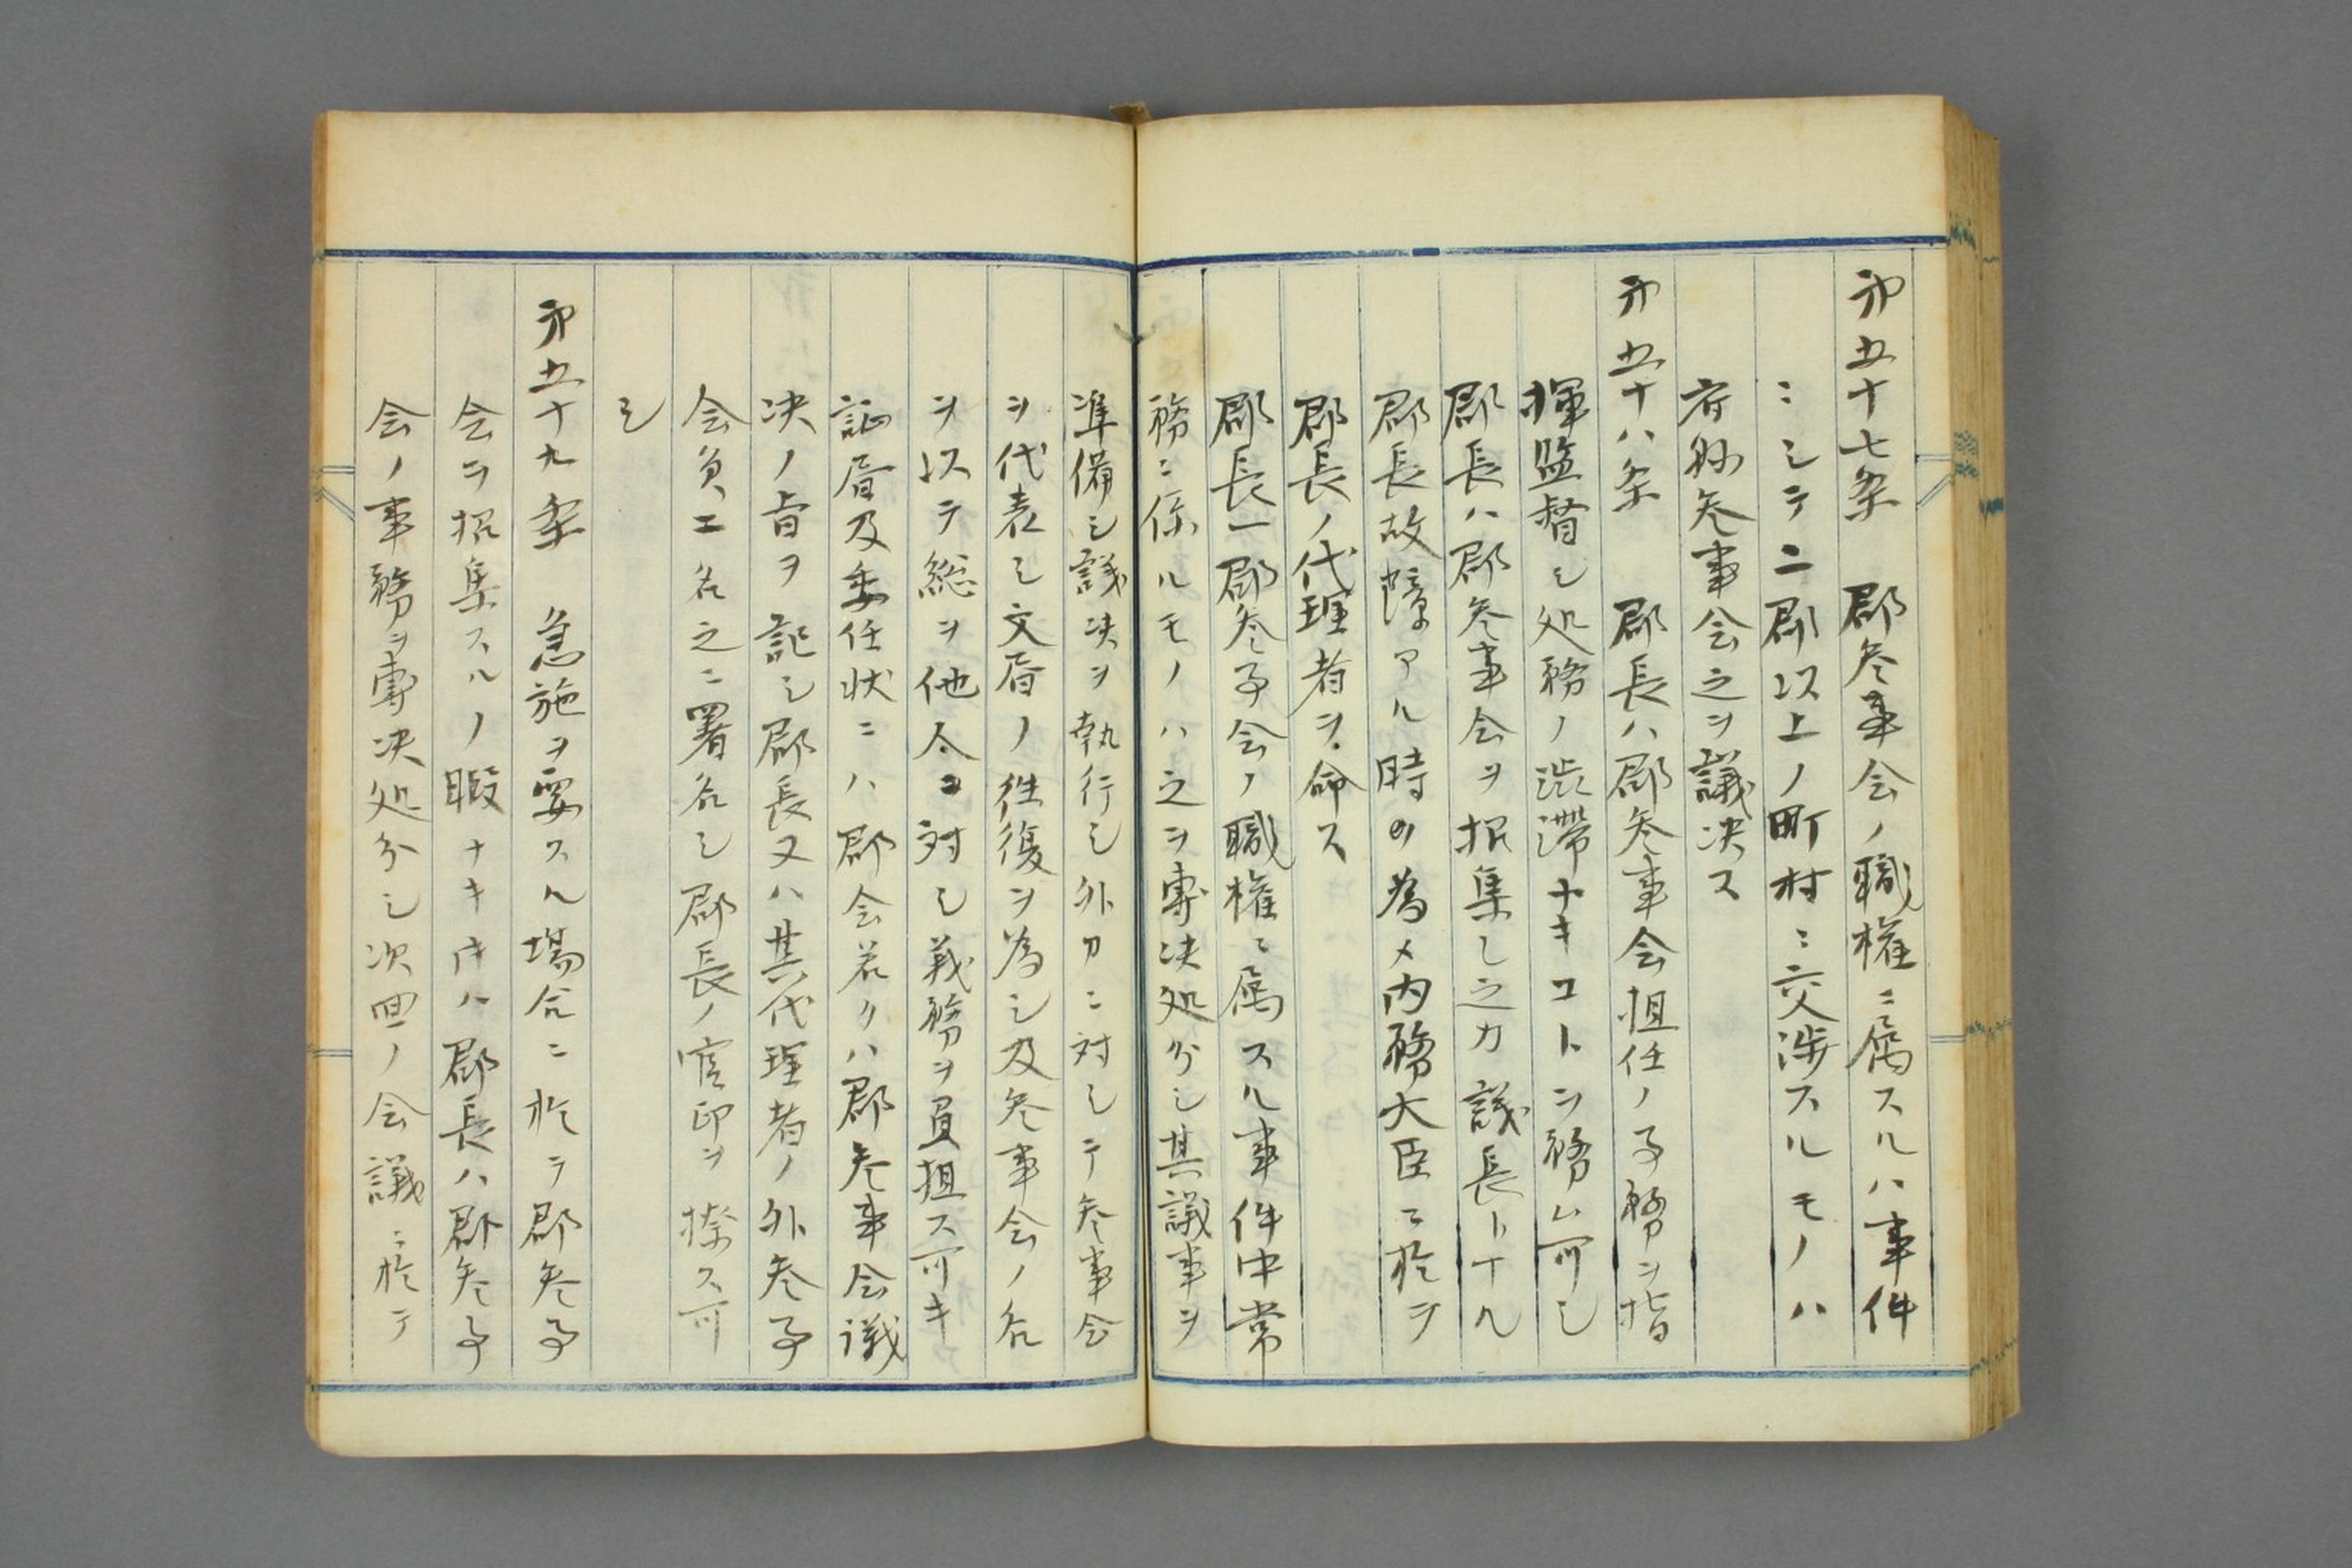 第五十七条　郡参事会ノ職権ニ属スルハ事件
ニシテ二郡以上ノ町村ニ交渉スルモノハ
府県参事会之ヲ議决ス
第五十八条　郡長ハ郡参事会担任ノ事務ヲ指
揮監督シ処務ノ渋滞ナキコトヲ務ム可シ
郡長ハ郡参事会ヲ招集シ之カ議長トナル
郡長故障アル時ノ為メ内務大臣ニ於テ
郡長ノ代理者ヲ命ス
郡長ハ郡参事会ノ職権ニ属スル事件中常
務ニ係ルモノハ之ヲ専决処分シ其議事ヲ
準備シ議决ヲ執行シ外カニ対シテ参事会
ヲ代表シ文書ノ往復ヲ為シ及参事会ノ名
ヲ以テ総ヲ他人ニ対シ義務ヲ負担ス可キ
証書及委任状ニハ郡会若クハ郡参事会議
决ノ旨ヲ記シ郡長又ハ其代理者ノ外参事
会員二名之ニ署名シ郡長ノ官印ヲ捺ス可
シ
第五十九条　急施ヲ要スル場合ニ於テ郡参事
会ヲ招集スルノ暇ナキ時ハ郡長ハ郡参事
会ノ事務ヲ専决処分シ次回ノ会議ニ於テ